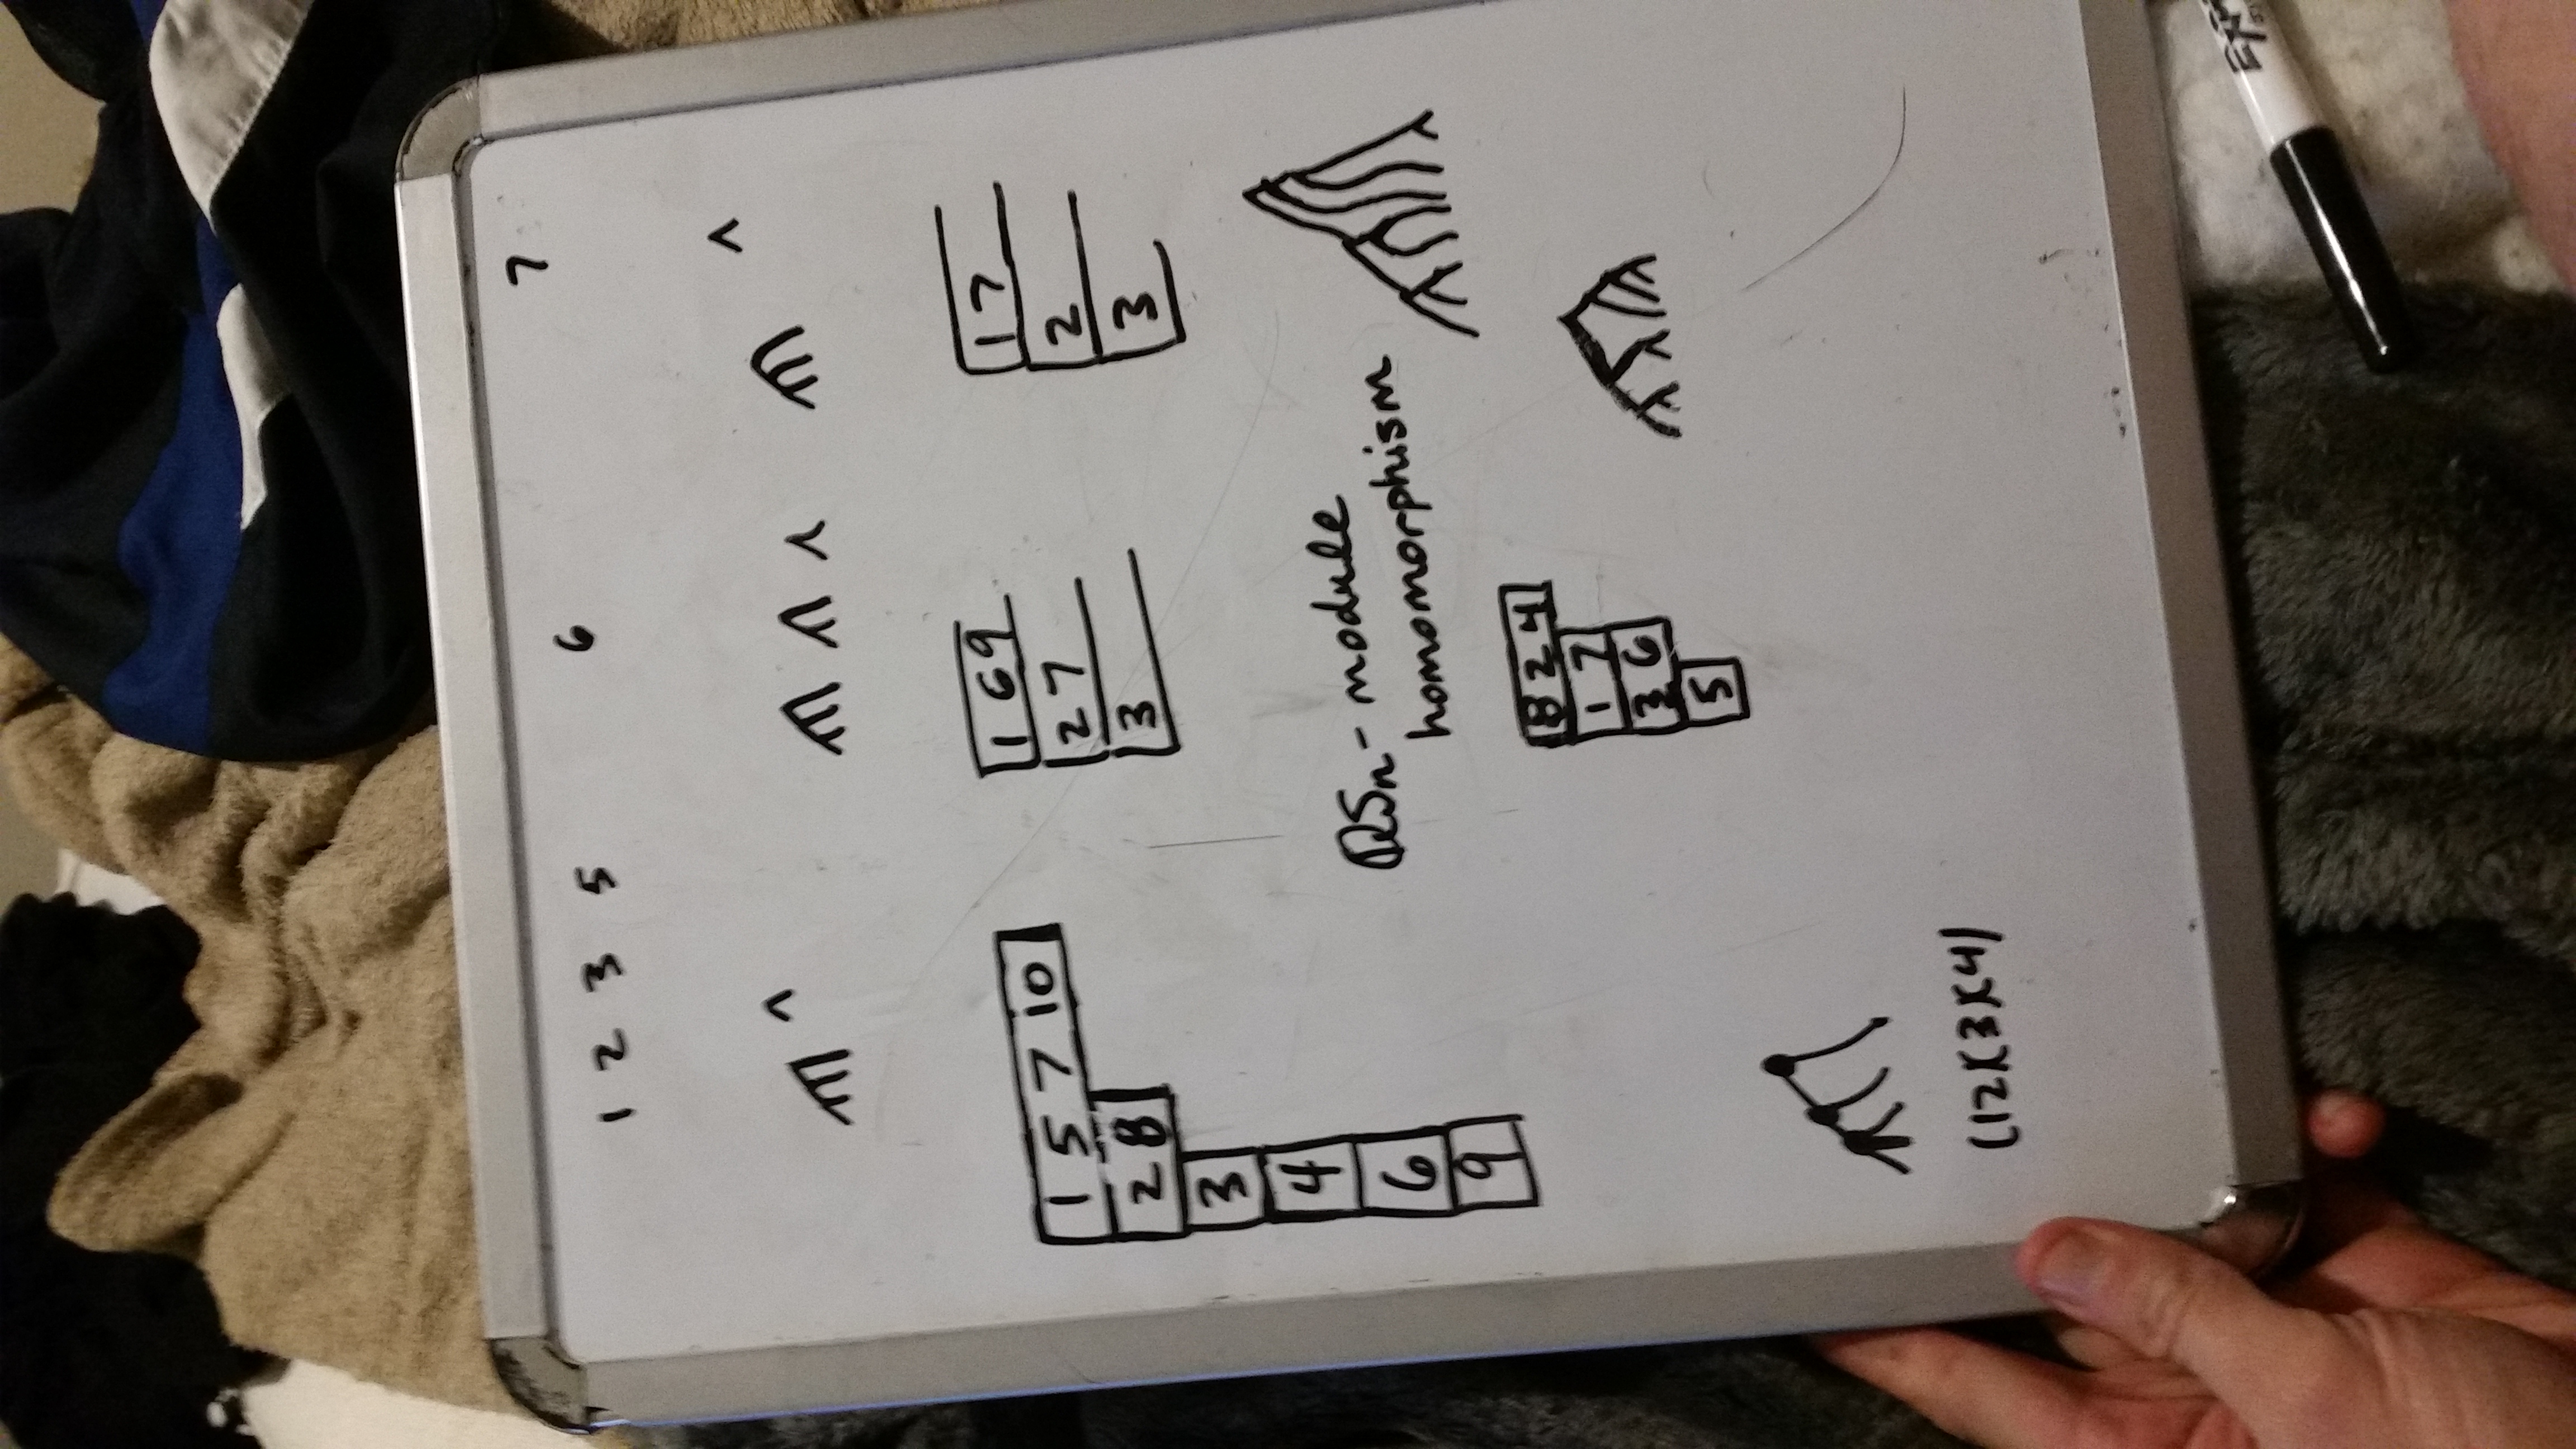 1 2 3 5 6 7
1 5 7 10
2 8
3
4
6
9
1 6 9
2 7
3
1 7
2
3
QSn-module
homomorphism
8 2 4
1 7
3 6
5
(12)(3)(4)